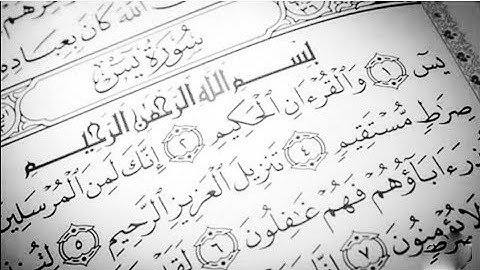 الله كان بعباده
سُورَةُ يسٓ
بِسْمِ اللَّهِ الرَّحْمَٰنِ الرَّحِيمِ
يسٓ ١ وَالْقُرْءَانِ الْحَكِيمِ ٢ إِنَّكَ لَمِنَ الْمُرْسَلِينَ
صِرَٰطٍ مُّسْتَقِيمٍ ٤ تَنزِيلَ الْعَزِيزِ الرَّحِيمِ ٥
ءَابَاؤُهُمْ فَهُمْ غَٰفِلُونَ ٦ لَقَدْ
لَا يُؤْمِنُونَ ٧ إِنَّا